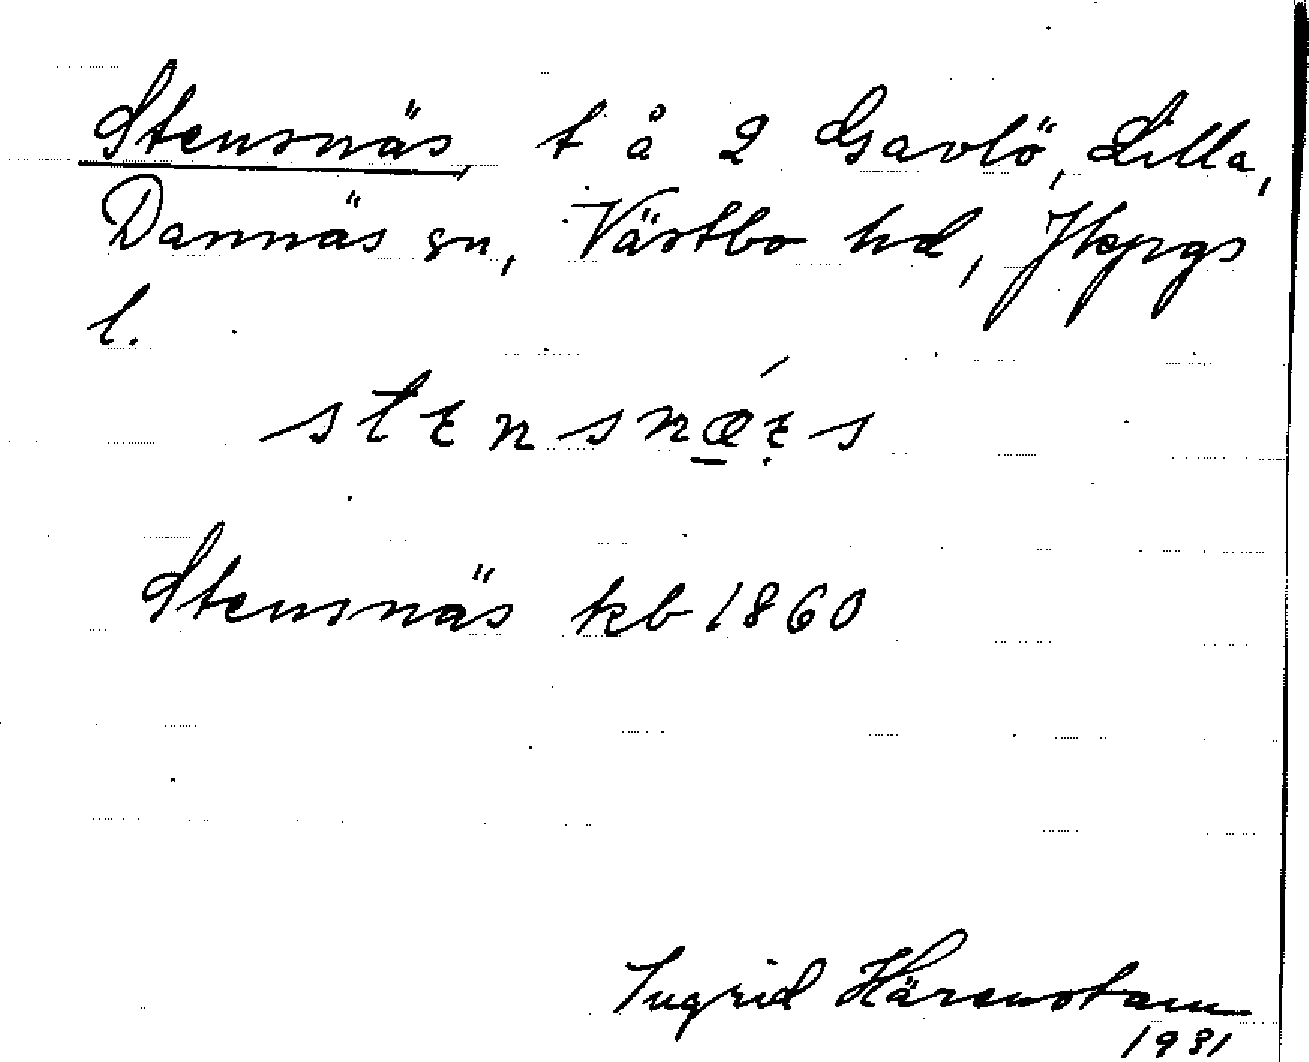 Stensnäs, t å 2 Gavlö, Lilla,
Dannäs sn, Västbo hd, Jkpgs
l.
stensnǽ̠ṭs
Stensnäs kb 1860
Ingrid Härenstam
1931